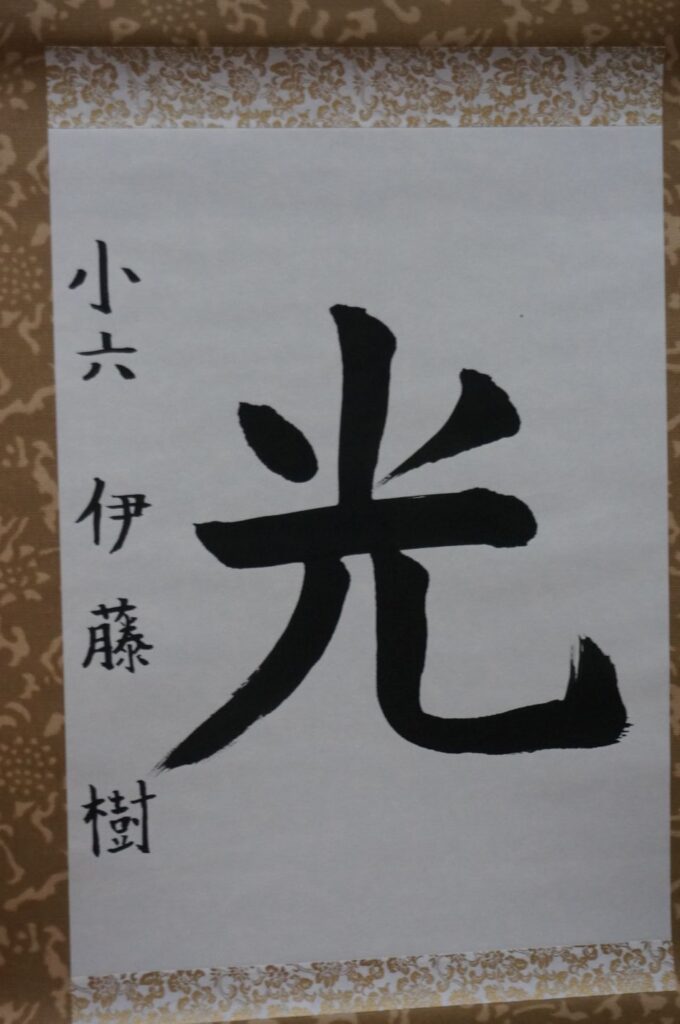 光
小六 伊藤 樹